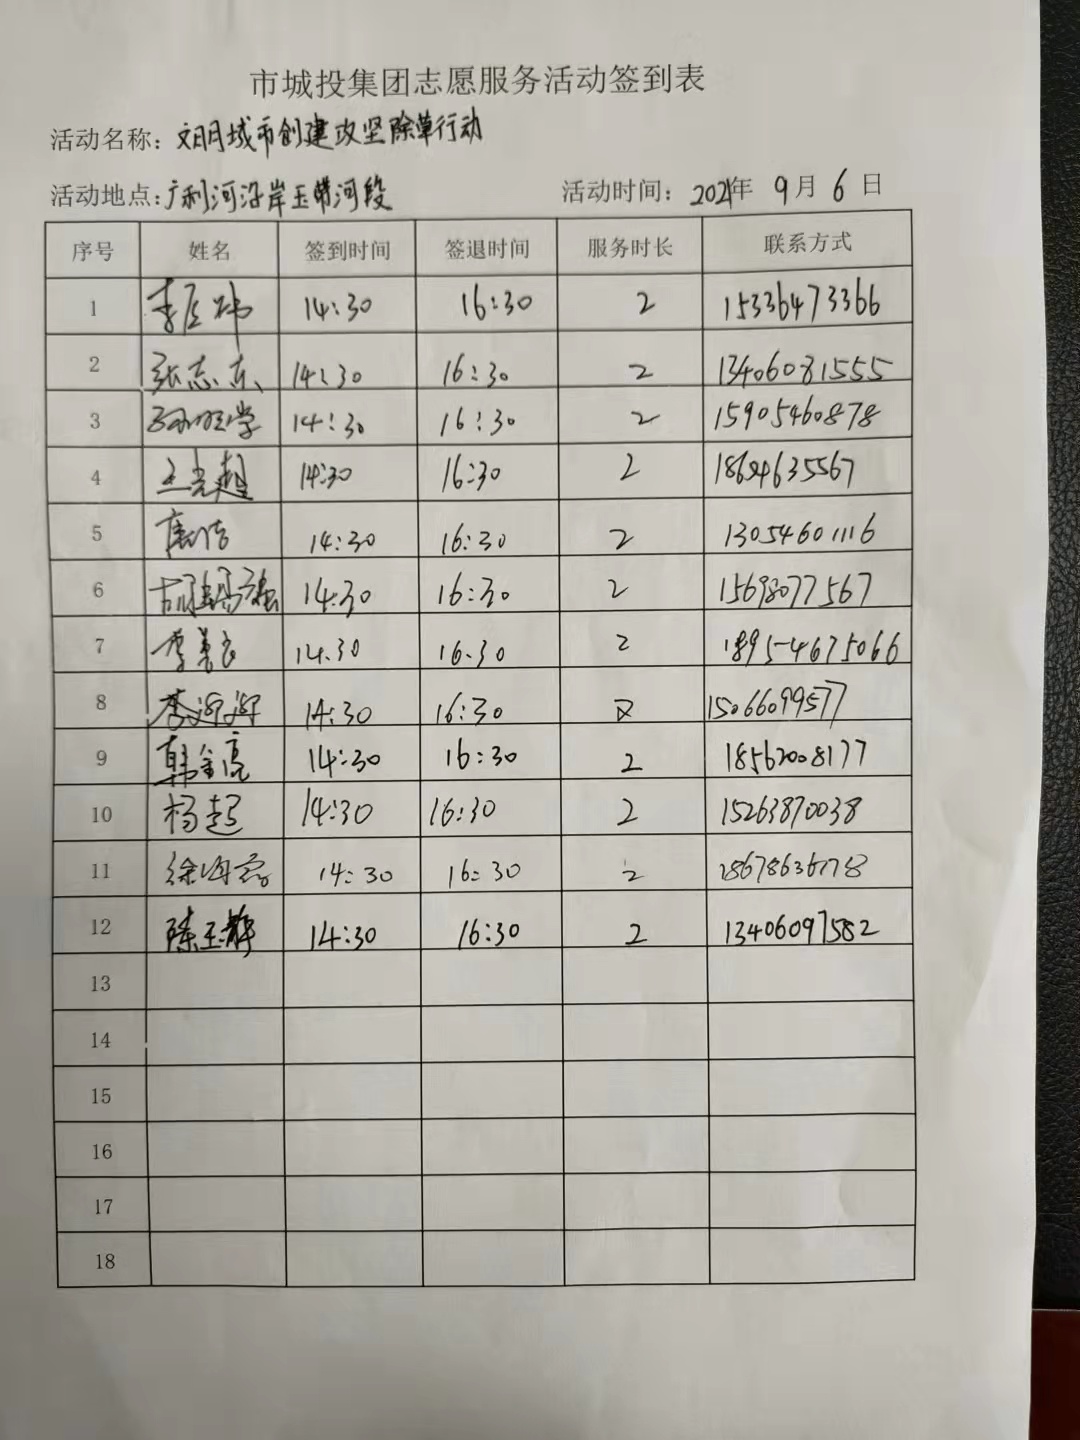 市城投集团志愿服务活动签到表
活动名称：文明城市创建攻坚除草行动
活动地点：广利河沿岸玉带河段 活动时间：2021年 9月 6日
序号 姓名 签到时间 签退时间 服务时长 联系方式
1 14:30 16:30 2 15336473366
2 张志东 14:30 16:30 2 13406081555
3 14:30 16:30 2 15905460878
4 王光超 14:30 16:30 2 18654635567
5 唐洁 14:30 16:30 2 13054601116
6 14:30 16:30 2 15698077567
7 李善良 14.30 16.30 2 18954675066
8 14:30 16:30 15066099577
9 韩金亮 14:30 16:30 2 18562008177
10 杨超 14:30 16:30 2 15263870038
11 14:30 16:30 2
12 陈玉静 14:30 16:30 2 13406097582
13
14
15
16
17
18